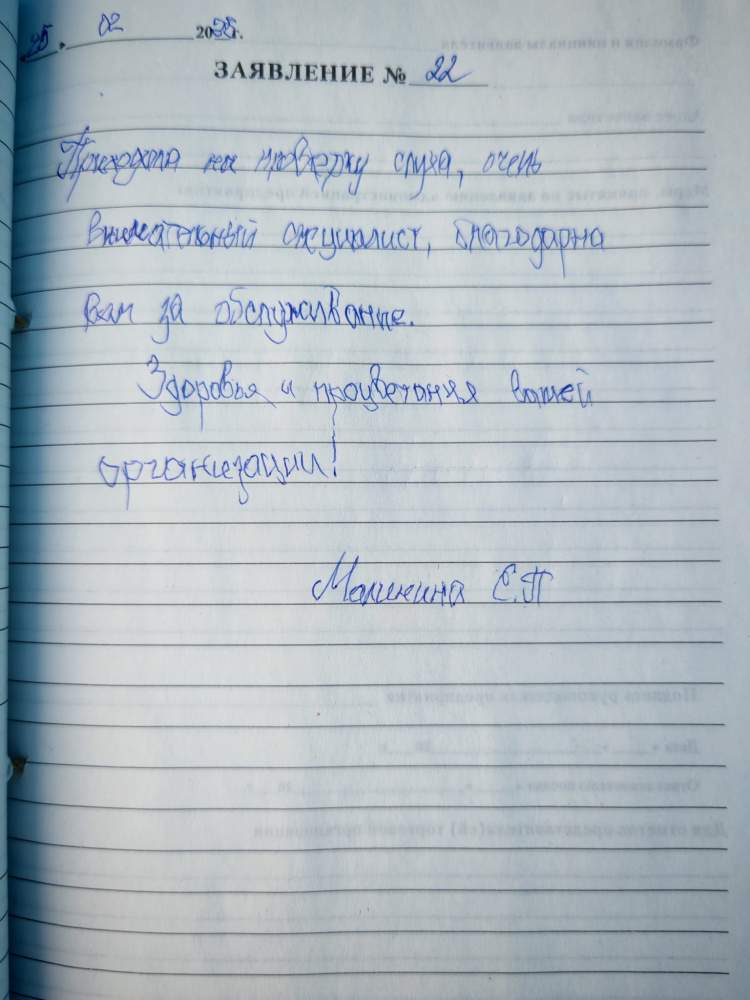 25. 02 2025г.
ЗАЯВЛЕНИЕ № 22
Приходила на проверку слуха, очень
внимательный специалист, благодарна
вам за обслуживание.
Здоровья и процветания вашей
организации!
Малинина Е.П